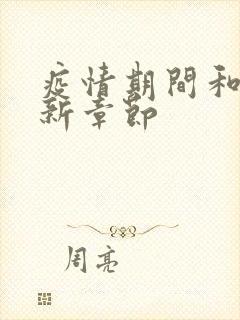 疫情期間和
新章節
周亮